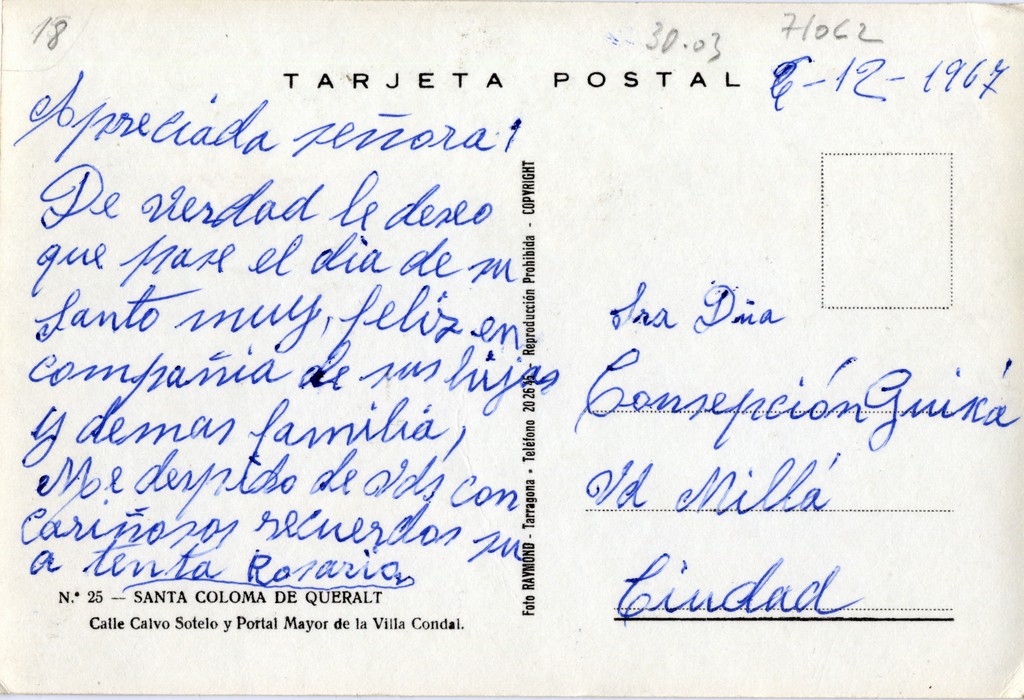 18
30.03
7/062
TARJETA POSTAL
6-12-1967
Apreciada señora!
De verdad le deseo
que pase el dia de su
Santo muy, feliz en
compañia de sus hijas
y demas familia,
Me despido de Vds con
cariñosos recuerdos su
a tenta Rosario
N.º 25 — SANTA COLOMA DE QUERALT
Calle Calvo Sotelo y Portal Mayor de la Villa Condal.
Foto RAYMOND - Tarragona - Teléfono 20 26 - Reproducción Prohibida - COPYRIGHT
Sra Dña
Consepción Guixá
Vd Millá
Ciudad